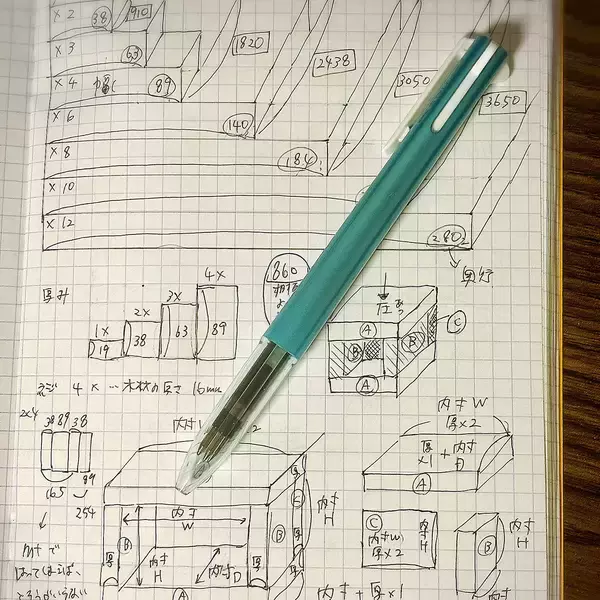 ×2 38 910
×3 63 1820
×4 幅 89 2438
×6 140 3050
×8 184 3650
×10
×12 280
奥行
厚み
1× 2× 3× 4×
19 38 63 89
860
圧
A
B B C
A
ネジ 4× … 木材の厚さ 16mm
2x4 38 89 38
89
165
254
内寸W
厚×2
厚×1 + 内寸D
A
内寸
W
B B
内寸H
内寸D
厚 厚
C
内寸H
A
C
内寸W
厚×2
内寸H
B
内寸H
内寸 + 厚×1